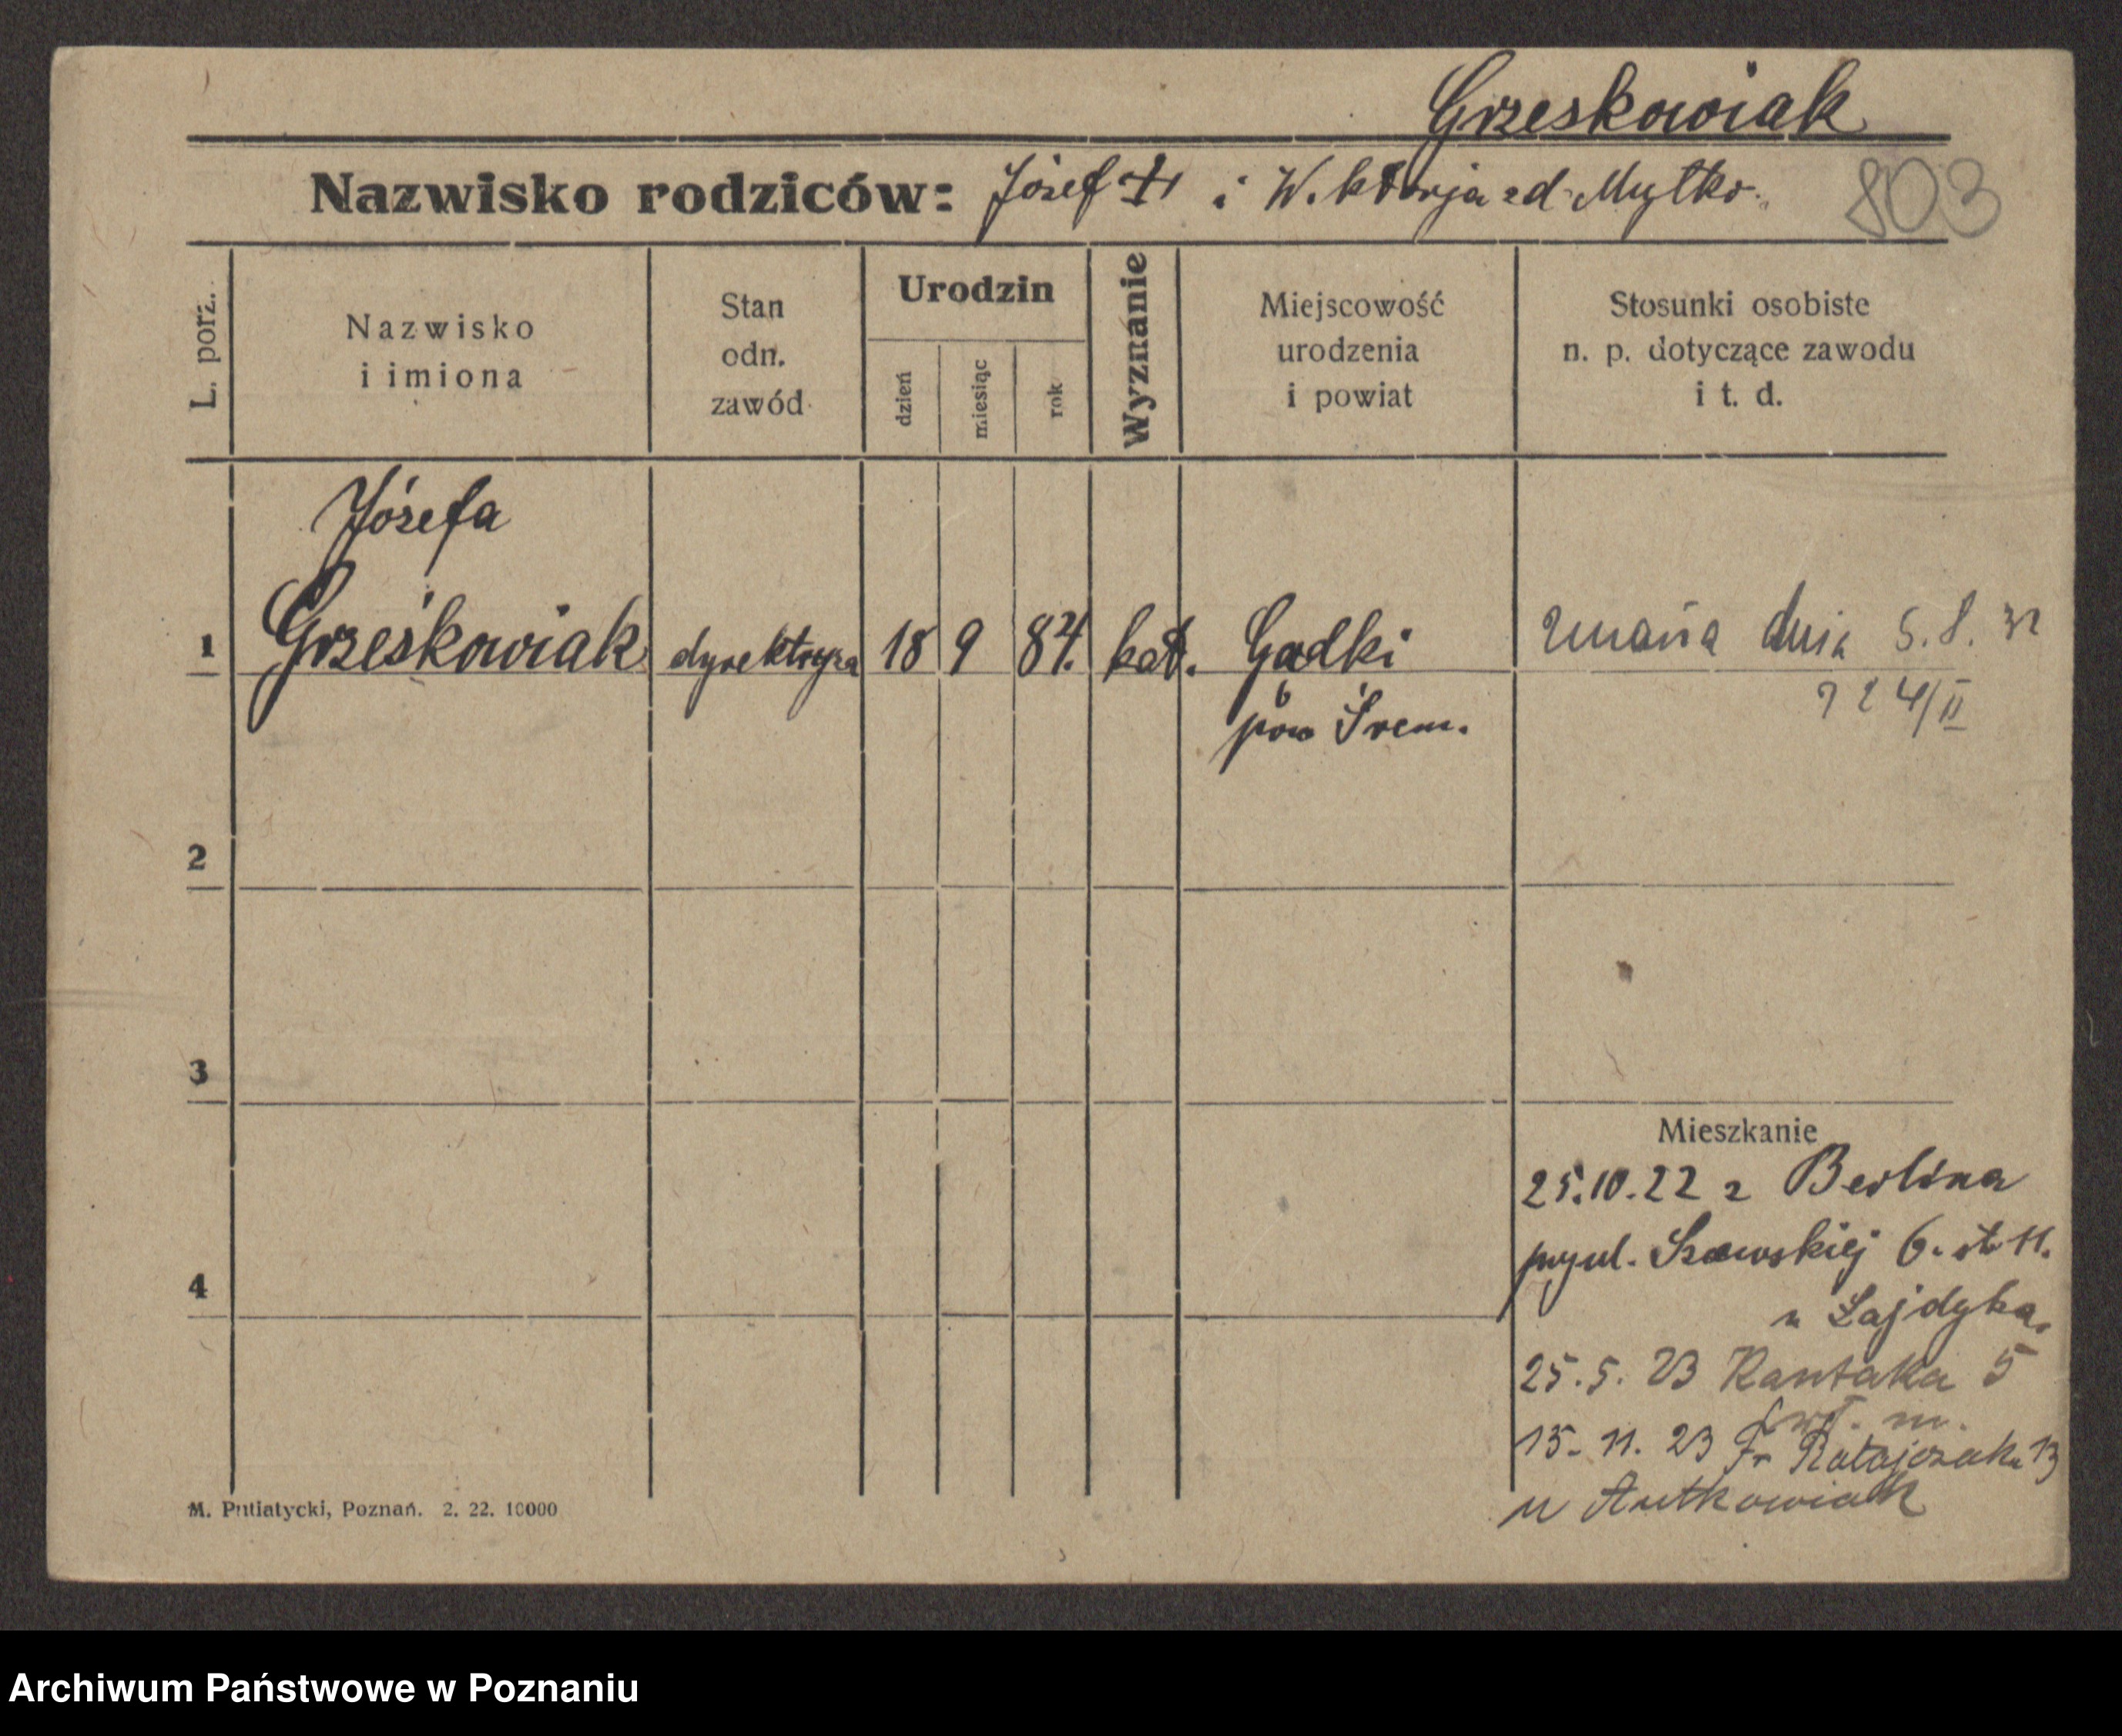 Grzeskowiak
Nazwisko rodziców: Józef + i Wiktorja zd. Mytko.
803
L. porz.
Nazwisko
i imiona
Stan
odn.
zawód
Urodzin
dzień
miesiąc
rok
Wyznanie
Miejscowość
urodzenia
i powiat
Stosunki osobiste
n. p. dotyczące zawodu
i t. d.
Józefa
1 Grześkowiak dyrektryza 18 9 84. kat. Gądki
pow Śrem.
zmarła dnia 5.8. 32
724/II
2
3
4
Mieszkanie
25.10.22 z Berlina
przy ul. Szewskiej 6. st 11.
u Łajdyka.
25.5.23 Kantaka 5
wł. m.
15.11.23 Fr Ratajczaka 13
u Antkowiak
M. Putiatycki, Poznań. 2. 22. 10000
Archiwum Państwowe w Poznaniu